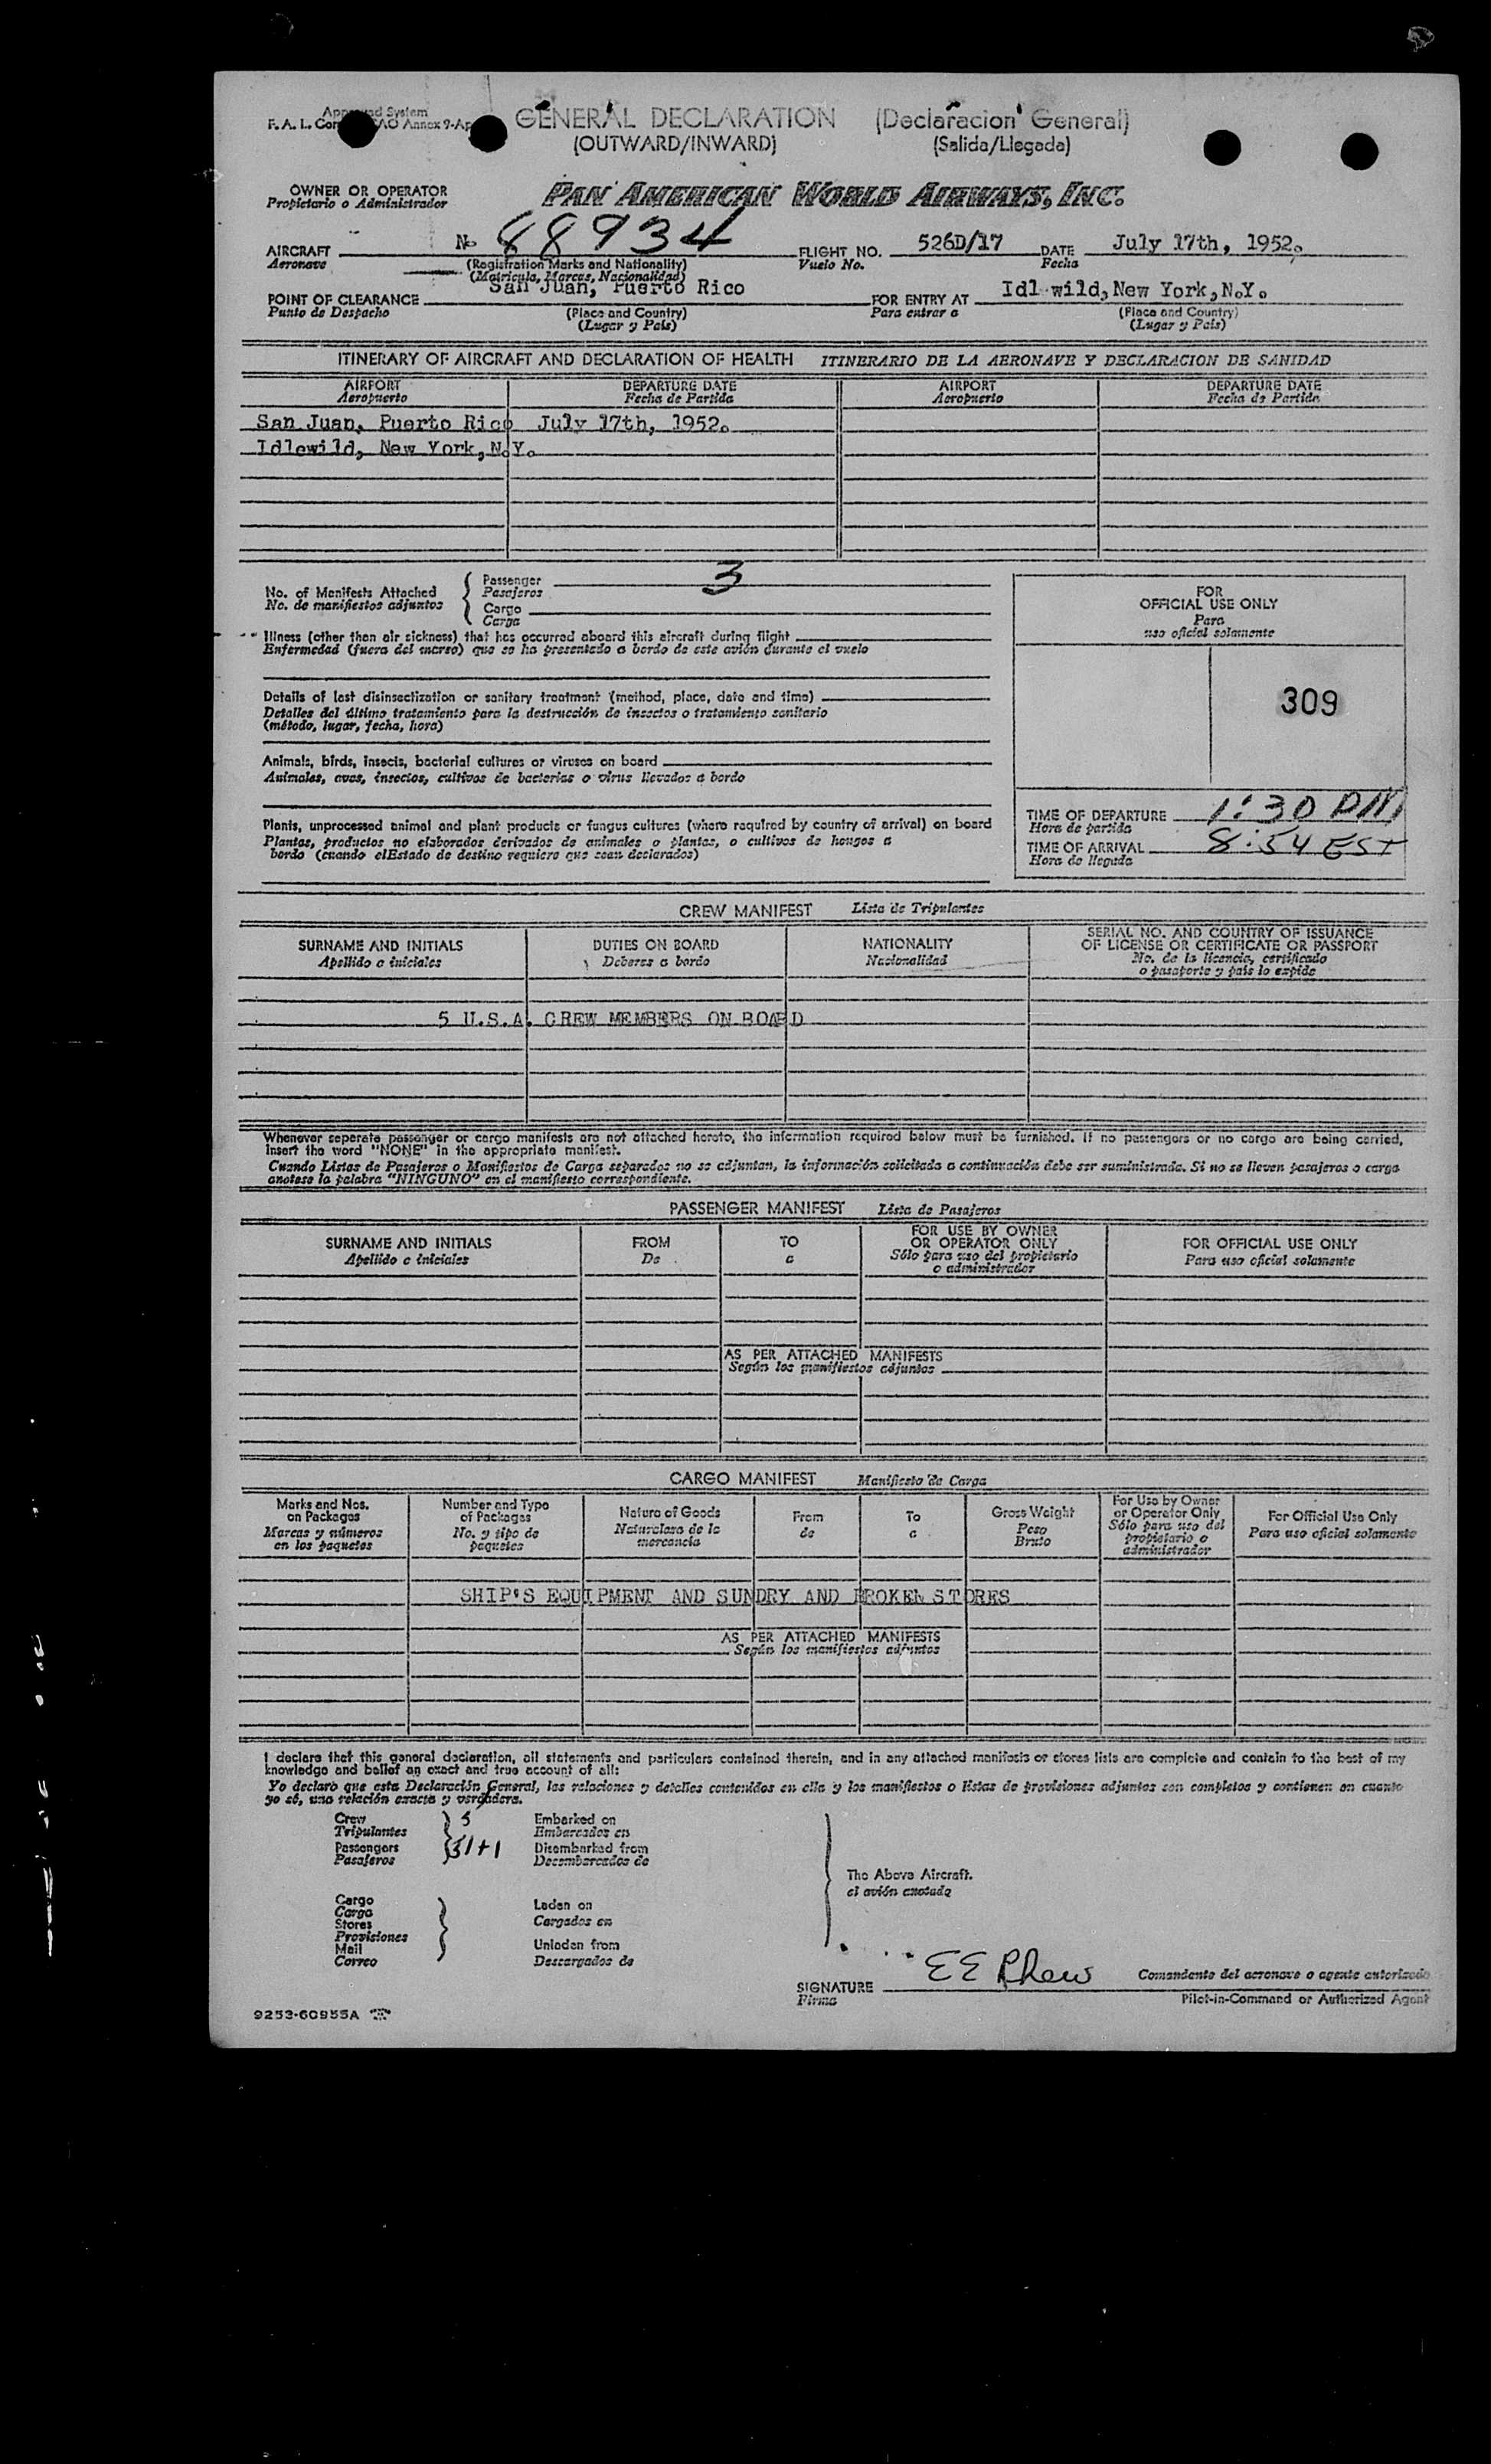 Approved System
F. A. L. Annex 9-Ap
GENERAL DECLARATION (Declaracion General)
(OUTWARD/INWARD) (Salida/Llegada)
OWNER OR OPERATOR
Propietario o Administrador
PAN AMERICAN WORLD AIRWAYS, INC.
AIRCRAFT No 88934 FLIGHT NO. 526D/17 DATE July 17th, 1952.
Aeronave (Registration Marks and Nationality) Vuelo No. Fecha
(Matricula, Marcas, Nacionalidad)
POINT OF CLEARANCE San Juan, Puerto Rico FOR ENTRY AT Idl wild, New York, N.Y.
Punto de Despacho (Place and Country) Para entrar a (Place and Country)
(Lugar y País) (Lugar y País)
ITINERARY OF AIRCRAFT AND DECLARATION OF HEALTH ITINERARIO DE LA AERONAVE Y DECLARACION DE SANIDAD
AIRPORT DEPARTURE DATE AIRPORT DEPARTURE DATE
Aeropuerto Fecha de Partida Aeropuerto Fecha de Partida
San Juan, Puerto Rico July 17th, 1952.
Idlewild, New York, N.Y.
No. of Manifests Attached
No. de manifiestos adjuntos
Passenger 3
Pasajeros
Cargo
Carga
Illness (other than air sickness) that has occurred aboard this aircraft during flight
Enfermedad (fuera del mareo) que se ha presentado a bordo de este avión durante el vuelo
Details of last disinsectization or sanitary treatment (method, place, date and time)
Detalles del último tratamiento para la destrucción de insectos o tratamiento sanitario
(método, lugar, fecha, hora)
Animals, birds, insects, bacterial cultures or viruses on board
Animales, aves, insectos, cultivos de bacterias o virus llevados a bordo
Plants, unprocessed animal and plant products or fungus cultures (where required by country of arrival) on board
Plantas, productos no elaborados derivados de animales o plantas, o cultivos de hongos a
bordo (cuando elEstado de destino requiere que sean declarados)
FOR
OFFICIAL USE ONLY
Para
uso oficial solamente
309
TIME OF DEPARTURE 1:30 PM
Hora de partida
TIME OF ARRIVAL 8:54 EST
Hora de llegada
CREW MANIFEST Lista de Tripulantes
SURNAME AND INITIALS DUTIES ON BOARD NATIONALITY SERIAL NO. AND COUNTRY OF ISSUANCE
OF LICENSE OR CERTIFICATE OR PASSPORT
Apellido e iniciales Deberes a bordo Nacionalidad No. de la licencia, certificado
o pasaporte y país lo expide
5 U.S.A. CREW MEMBERS ON BOARD
Whenever separate passenger or cargo manifests are not attached hereto, the information required below must be furnished. If no passengers or no cargo are being carried,
insert the word "NONE" in the appropriate manifest.
Cuando Listas de Pasajeros o Manifiestos de Carga separados no se adjuntan, la información solicitada a continuación debe ser suministrada. Si no se lleven pasajeros o carga
anotese la palabra "NINGUNO" en el manifiesto correspondiente.
PASSENGER MANIFEST Lista de Pasajeros
SURNAME AND INITIALS FROM TO FOR USE BY OWNER
OR OPERATOR ONLY FOR OFFICIAL USE ONLY
Apellido e iniciales De a Sólo para uso del propietario
o administrador Para uso oficial solamente
AS PER ATTACHED MANIFESTS
Según los manifiestos adjuntos
CARGO MANIFEST Manifiesto de Carga
Marks and Nos.
on Packages
Marcas y números
en los paquetes
Number and Type
of Packages
No. y tipo de
paquetes
Nature of Goods
Naturaleza de la
mercancia
From
de
To
a
Gross Weight
Peso
Bruto
For Use by Owner
or Operator Only
Sólo para uso del
propietario o
administrador
For Official Use Only
Para uso oficial solamente
SHIP'S EQUIPMENT AND SUNDRY AND BROKEN STORES
AS PER ATTACHED MANIFESTS
Según los manifiestos adjuntos
I declare that this general declaration, all statements and particulars contained therein, and in any attached manifests or stores lists are complete and contain to the best of my
knowledge and belief an exact and true account of all:
Yo declaro que esta Declaración General, las relaciones y detalles contenidos en ella y los manifiestos o listas de provisiones adjuntos son completos y contienen en cuanto
yo sé, una relación exacta y verdadera.
Crew 5
Tripulantes
Passengers 51+1
Pasajeros
Embarked on
Embarcados en
Disembarked from
Desembarcados de
The Above Aircraft.
el avión anotado
Cargo
Carga
Stores
Provisiones
Mail
Correo
Laden on
Cargados en
Unladen from
Descargados de
SIGNATURE E E Rhew Comandante del aeronave o agente autorizado
Firma Pilot-in-Command or Authorized Agent
9253-60955A